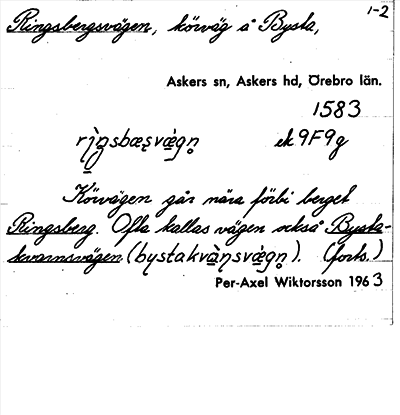 1-2
Ringsbergsvägen, körväg å Bysta,
Askers sn, Askers hd, Örebro län.
1583
ek 9F9g
Körvägen går nära förbi berget
Ringsberg. Ofta kallas vägen också Bysta-
kvarnsvägen (bystakvàṇsvæ̀gṇ). (forts.)
Per-Axel Wiktorsson 1963